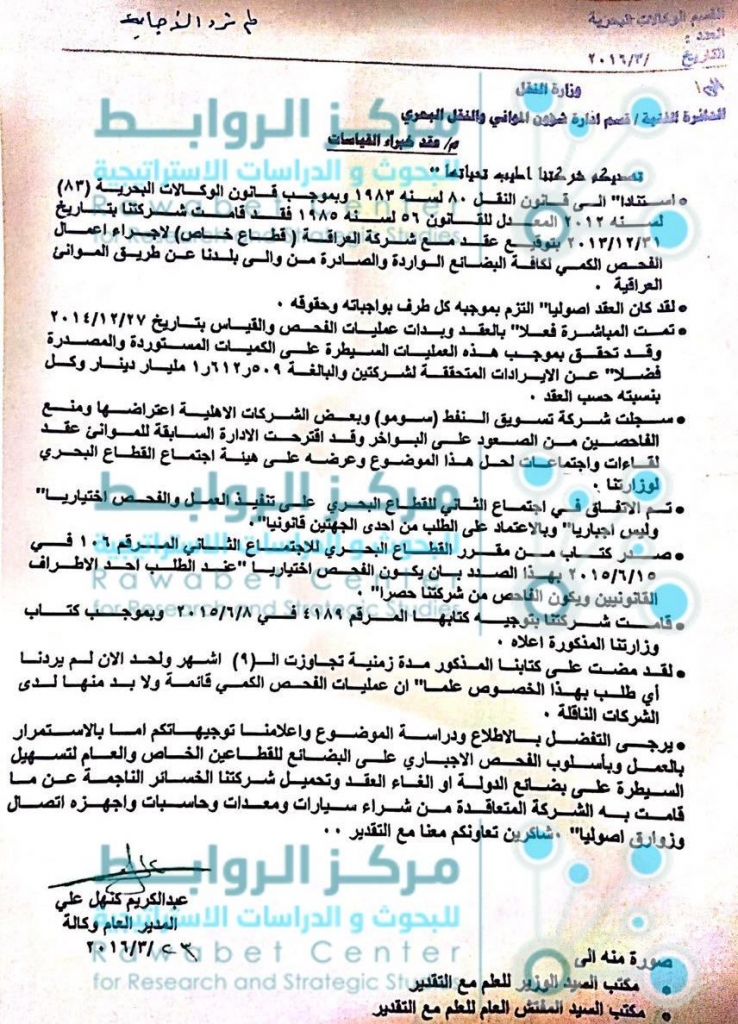 لم ترد الأجابة
القسم الوكالات البحرية
العدد :
التاريخ /٢٠١٦/٣
الى/ وزارة النقل
الدائرة الفنية / قسم ادارة شؤون الموانئ والنقل البحري
م/ عقد خبراء القياسات
تهديكم شركتنا اطيب تحياتها "
• استنادا" الى قانون النقل ٨٠ لسنه ١٩٨٣ وبموجب قانون الوكالات البحرية (٨٣)
لسنه ٢٠١٢ المعدل للقانون ٥٦ لسنه ١٩٨٥ فقد قامت شركتنا بتاريخ
٢٠١٣/١٢/٣١ بتوقيع عقد مع شركة العراقة ( قطاع خاص) لاجراء اعمال
الفحص الكمي لكافة البضائع الواردة والصادرة من والى بلدنا عن طريق الموانئ
العراقية .
• لقد كان العقد اصوليا" التزم بموجبه كل طرف بواجباته وحقوقه .
• تمت المباشرة فعلا" بالعقد وبدات عمليات الفحص والقياس بتاريخ ٢٠١٤/١٢/٢٧
وقد تحقق بموجب هذه العمليات السيطرة على الكميات المستوردة والمصدرة
فضلا" عن الايرادات المتحققة لشركتين والبالغة ٥٠٩ر٦١٢ر١ مليار دينار وكل
بنسبته حسب العقد .
• سجلت شركة تسويق النفط (سومو) وبعض الشركات الاهلية اعتراضها ومنع
الفاحصين من الصعود على البواخر وقد اقترحت الادارة السابقة للموانئ عقد
لقاءات واجتماعات لحل هذا الموضوع وعرضه على هيئة اجتماع القطاع البحري
لوزارتنا .
• تم الاتفاق في اجتماع الثاني للقطاع البحري على تنفيذ العمل والفحص اختياريا"
وليس اجباريا" وبالاعتماد على الطلب من احدى الجهتين قانونيا" .
• صدر كتاب من مقرر القطاع البحري للاجتماع الثاني المرقم ١٠٦ في
٢٠١٥/٦/١٥ بهذا الصدد بان يكون الفحص اختياريا "عند الطلب احد الاطراف
القانونيين ويكون الفاحص من شركتنا حصرا" .
• قامت شركتنا بتوجيه كتابها المرقم ٤١٨٩ في ٢٠١٥/٦/٨ وبموجب كتاب
وزارتنا المذكورة اعلاه .
• لقد مضت على كتابنا المذكور مدة زمنية تجاوزت الـ(٩) اشهر ولحد الان لم يردنا
أي طلب بهذا الخصوص علما" ان عمليات الفحص الكمي قائمة ولا بد منها لدى
الشركات الناقلة .
• يرجى التفضل بالاطلاع ودراسة الموضوع واعلامنا توجيهاتكم اما بالاستمرار
بالعمل وبأسلوب الفحص الاجباري على البضائع للقطاعين الخاص والعام لتسهيل
السيطرة على بضائع الدولة او الغاء العقد وتحميل شركتنا الخسائر الناجمة عن ما
قامت به الشركة المتعاقدة من شراء سيارات ومعدات وحاسبات واجهزه اتصال
وزوارق اصوليا" . شاكرين تعاونكم معنا مع التقدير ..
عبدالكريم كنهل علي
المدير العام وكالة
٢٠١٦/٣/٢٣
صورة منه الى
• مكتب السيد الوزير للعلم مع التقدير
• مكتب السيد المفتش العام للعلم مع التقدير
مركز الروابط
للبحوث و الدراسات الاستراتيجية
Rawabet Center
for Research and Strategic Studies
مركز الروابط
للبحوث و الدراسات الاستراتيجية
Rawabet Center
for Research and Strategic Studies
مركز الروابط
للبحوث و الدراسات الاستراتيجية
Rawabet Center
for Research and Strategic Studies